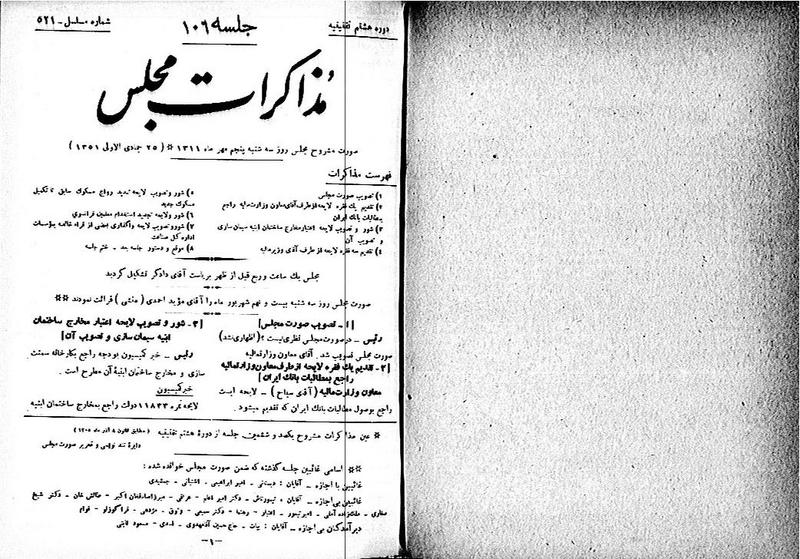 دوره هشتم تقنینیه
جلسه ۱۰۶
شماره مسلسل - ۵۲۱
مذاکرات مجلس
صورت مشروح مجلس روز سه شنبه پنجم مهر ماه ۱۳۱۱ * ( ۲۵ جمادی الاولی ۱۳۵۱ )
فهرست مذاکرات
۱) تصویب صورت مجلس
۲) تقدیم یك فقره لایحه از طرف آقای معاون وزارت مالیه راجع
بمطالبات بانك ایران
۳) شور و تصویب لایحه اعتبار مخارج ساختمان ابنیه سیمان سازی
و تصویب آن
۴) تقدیم سه فقره لایحه از طرف آقای وزیر مالیه
۵) شور و تصویب لایحه تمدید رواج مسکوك سابق تا تکمیل
مسکوك جدید
۶) شور ولایحه تجدید استخدام معلمین فرانسوی
۷) شور و تصویب لایحه واگذاری بعضی از قراء خالصه بمؤسسات
اداره کل صناعت
۸) موقع و دستور جلسه بعد - ختم جلسه
مجلس یك ساعت و ربع قبل از ظهر بریاست آقای دادگر تشکیل گردید
صورت مجلس روز سه شنبه بیست و نهم شهریور ماه را آقای مؤید احمدی ( منشی ) قرائت نمودند **
[ ۱- تصویب صورت مجلس ]
رئیس - در صورت مجلس نظری نیست ؟ ( اظهاری نشد )
صورت مجلس تصویب شد . آقای معاون وزارت مالیه
[ ۲- تقدیم یك فقره لایحه از طرف معاون وزارت مالیه
راجع بمطالبات بانك ایران ]
معاون وزارت مالیه ( آقای سیاح ) - لایحه ایست
راجع بوصول مطالبات بانك ایران که تقدیم میشود .
[ ۳- شور و تصویب لایحه اعتبار مخارج ساختمان
ابنیه سیمان سازی و تصویب آن ]
رئیس - خبر کمیسیون بودجه راجع بکارخانه سمنت
سازی و مخارج ساختمان ابنیهٔ آن مطرح است .
خبر کمیسیون
لایحه نمره ۱۱۸۳۳ دولت راجع بمخارج ساختمان ابنیه
* عین مذاکرات مشروح یکصد و ششمین جلسه از دورهٔ هشتم تقنینیه ( مطابق قانون ۸ آذر ماه ۱۳۰۵ )
دایرهٔ تند نویسی و تحریر صورت مجلس
** اسامی غائبین جلسه گذشته که ضمن صورت مجلس خوانده شده :
غائبین با اجازه - آقایان : دبستانی - امیر ابراهیمی - آشتیانی - جمشیدی
غائبین بی اجازه - آقایان : تیمورتاش - دکتر امیر اعلم - عراقی - میرزا صادقخان اکبر - حاکش خان - دکتر شیخ
صفاری - ملك زاده آملی - امیر تیمور - اعتبار - رهنما - دکتر سمیعی - وثوق - مژدهی - قراگوزلو - قوام
دیر آمدگان بی اجازه - آقایان : بیات - حاج حسین آقا مهدوی - اسدی - مسعود ثابتی
-۱-